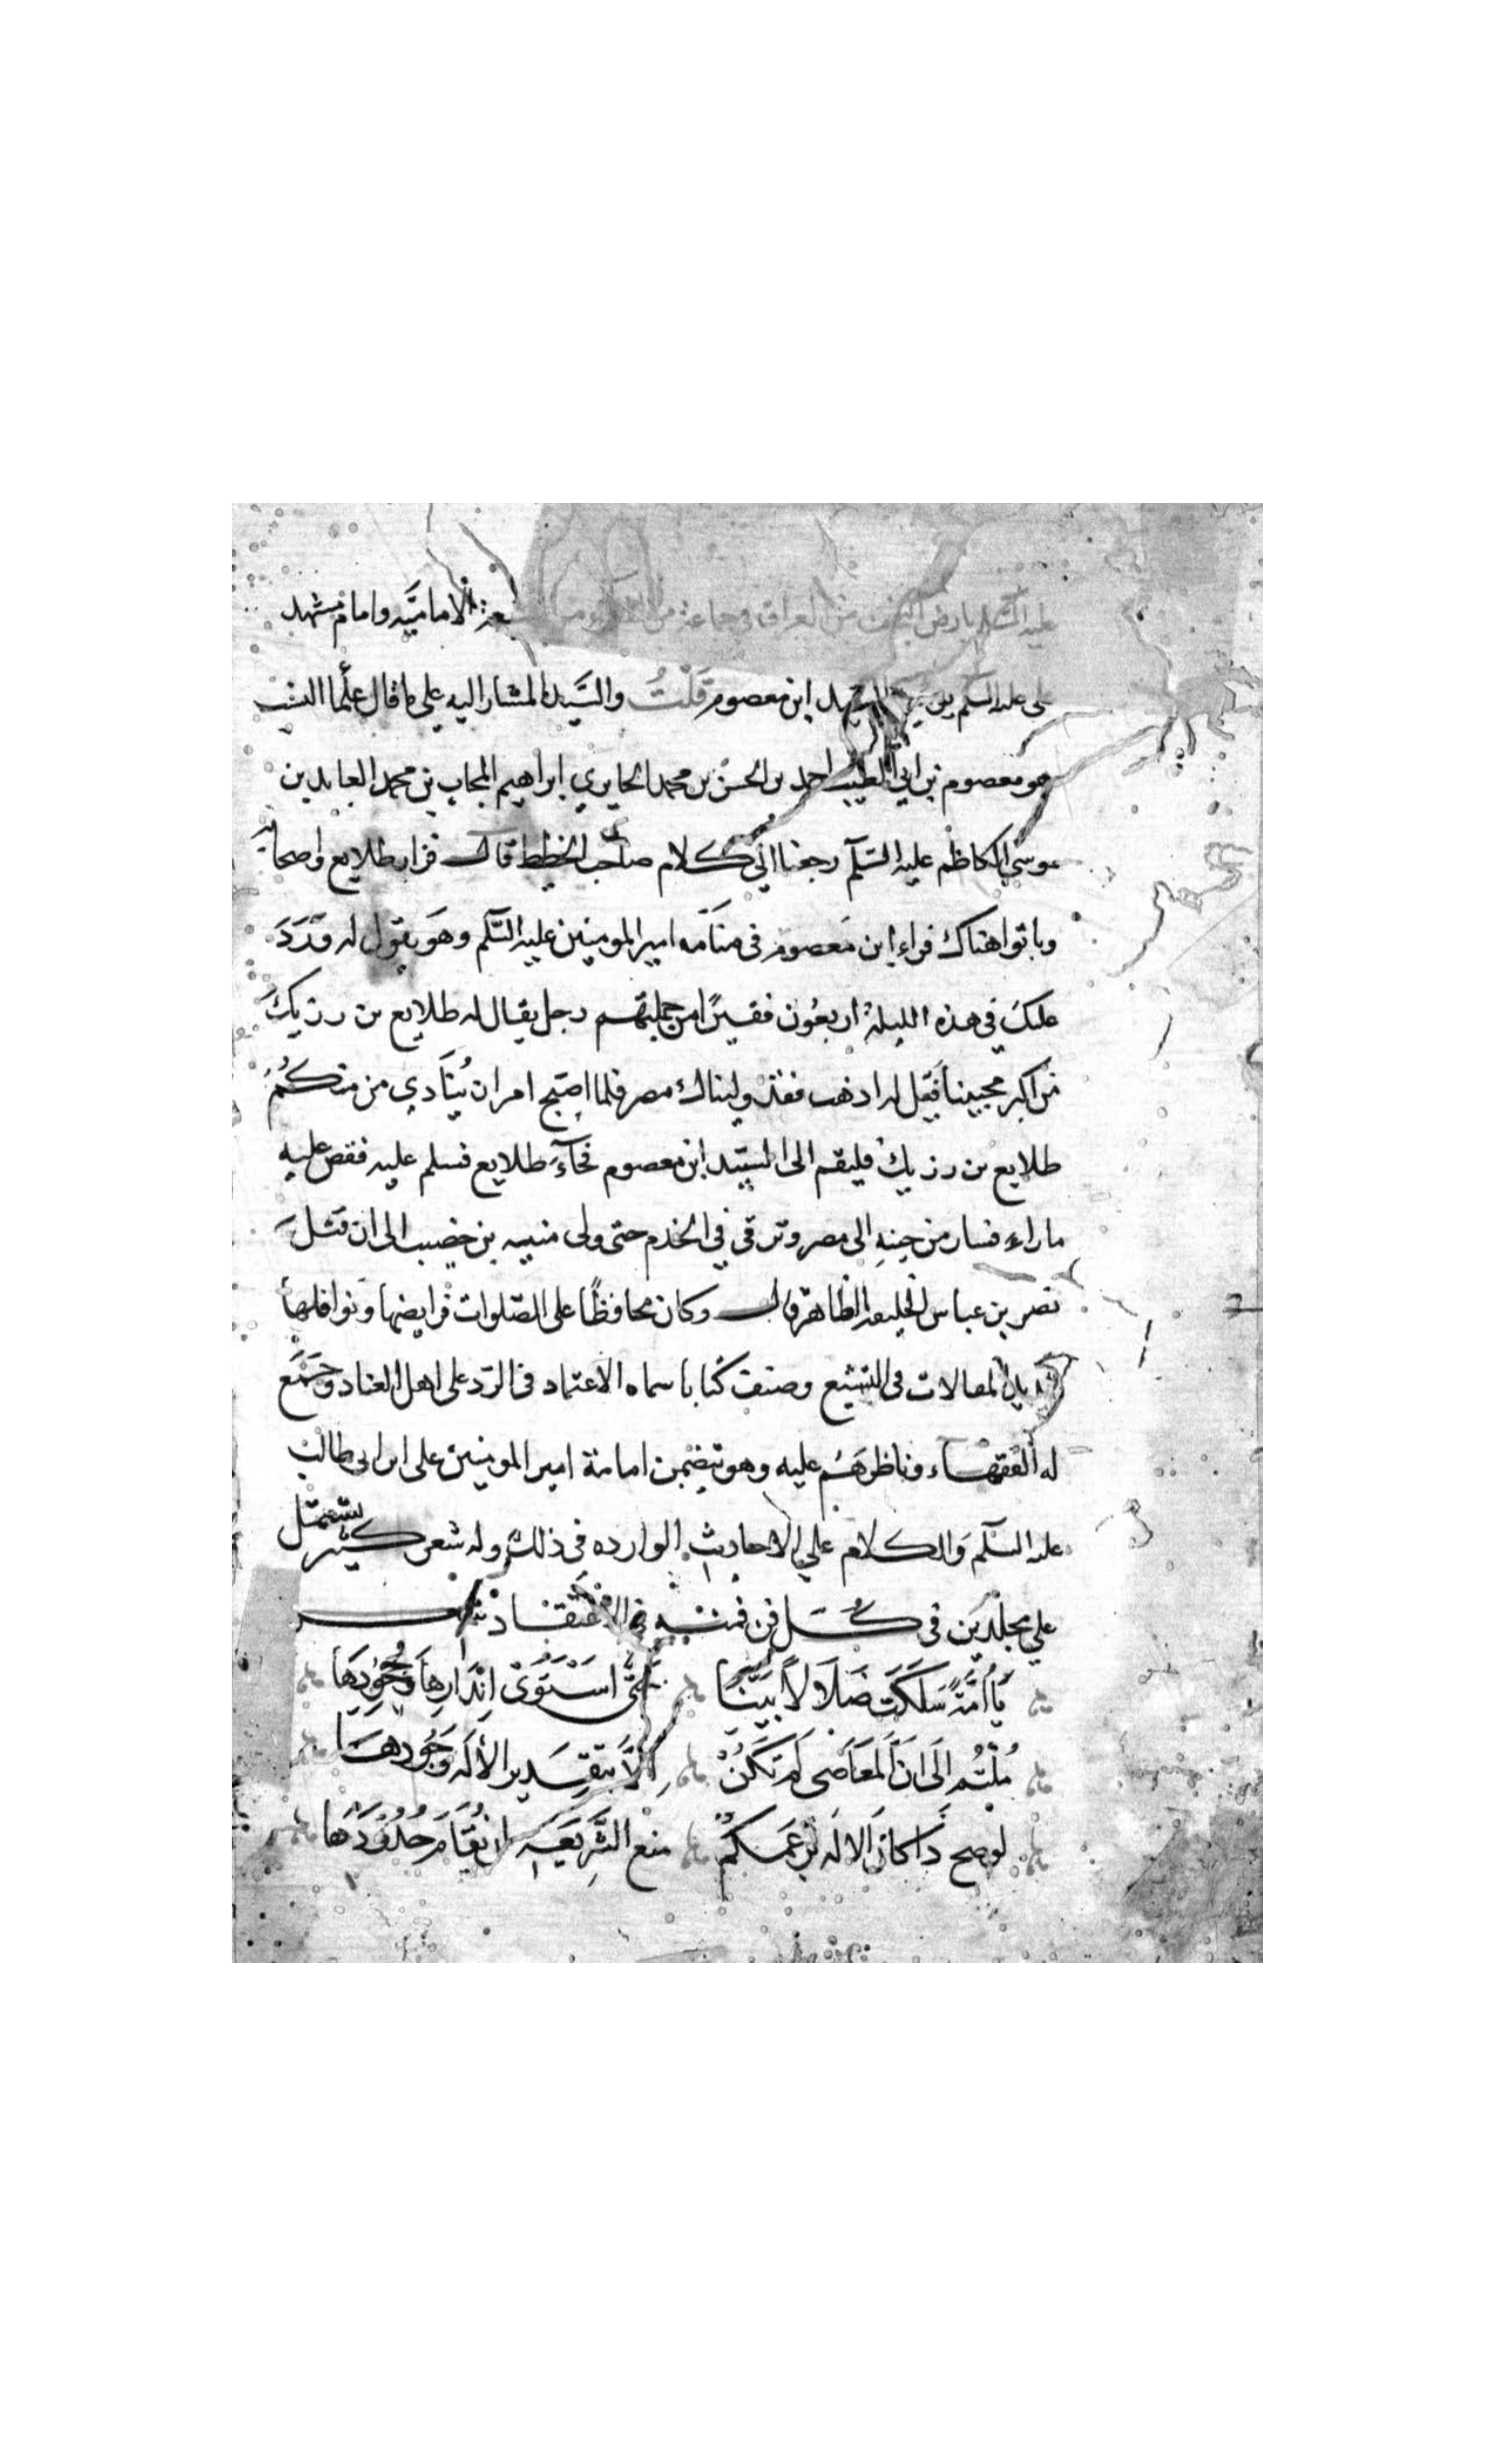 عليه السلم بارض النجف من العراق في جماعة من الفقراء من الشيعة الاماميّه وامام مشهد
على عليه السلم يوميذ السيد ابن معصوم قُلْتُ والسَّيد المشار اليه على ما قال علمآ النسب
هو معصوم بن ابي الطيب احمد بن الحسن بن محمد الحايري ابراهيم المجاب بن محمد العابد بن
موسى الكاظم عليه السّلم رجعنا الى كلام صاحب الخطط قال فزار طلايع واصحابه
وباتوا هناك فراء ابن معصوم في منامه امير المومنين عليه السّلم وهو يقول له قد وَرَدَ
عليك في هذه الليلة اربعُون فقيرًا من جملتهم رجل يقال له طلايع بن رزيك
من اكبر محبينا فقل له اذهب فقد وليناك مصر فلما اصبح امر ان يُنَادي من منكُمُ
طلايع بن رزيك فليقم الى السيّد ابن معصوم فجآءَ طلايع فسلم عليه فقص عليه
ما راء فسار من حِينِهِ الى مصر وترقى في الخدم حتى ولى منيه بن خصيب الى ان قتلَ
نصر بن عباس الخليفه الظاهر قال وكان محافظًا على الصّلوات فرايضها ونوافلها
شديد المغالات في التشيع وصنف كتابا سماه الاعتماد في الرّد على اهل العناد وجَمَع
له الفُقهاء وناظرهُم عليه وهو يتضمن امامة امير المومنين على ابن ابي طالب
عليه السّلم والكلام على الاحاديث الوارده في ذلك وله شعر كثير يشتمل
على مجلّدين في كُلّ فن فمنه في الاعتقاد شعر
يَا أُمَّةً سَلَكَت ضَلَالاً بَيّنًا حَتَّى اسْتَوَى اقْرَارِهَا وجُحُودِهَا
مُلْتُم اِلَى انَ المَعَاصَى لَم تَكُنْ اِلاَّ بتقدِير الاله وَجُودهَا
لوصح ذَا كان الاله بِزعمكُم منع الشَّرِيعَهِ ان تُقَامَ حُدُودَهَا